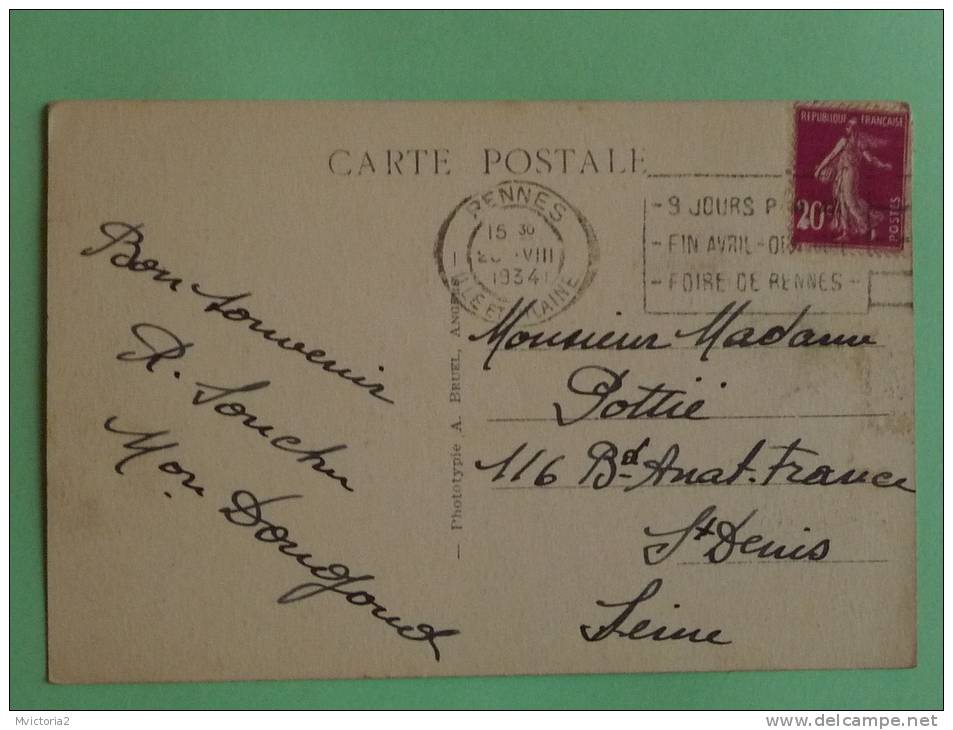 CARTE POSTALE
REPUBLIQUE FRANÇAISE
20c
POSTES
RENNES
15 30
VIII
1934
- 9 JOURS
- FIN AVRIL -
- FOIRE DE RENNES -
Bon souvenir
R. Souchu
Mon
— Phototypie A. BRUEL, ANGERS
Monsieur Madame
Pottié
116 Bd Anat. France
St Denis
Seine
Mvictoria2
www.delcampe.net